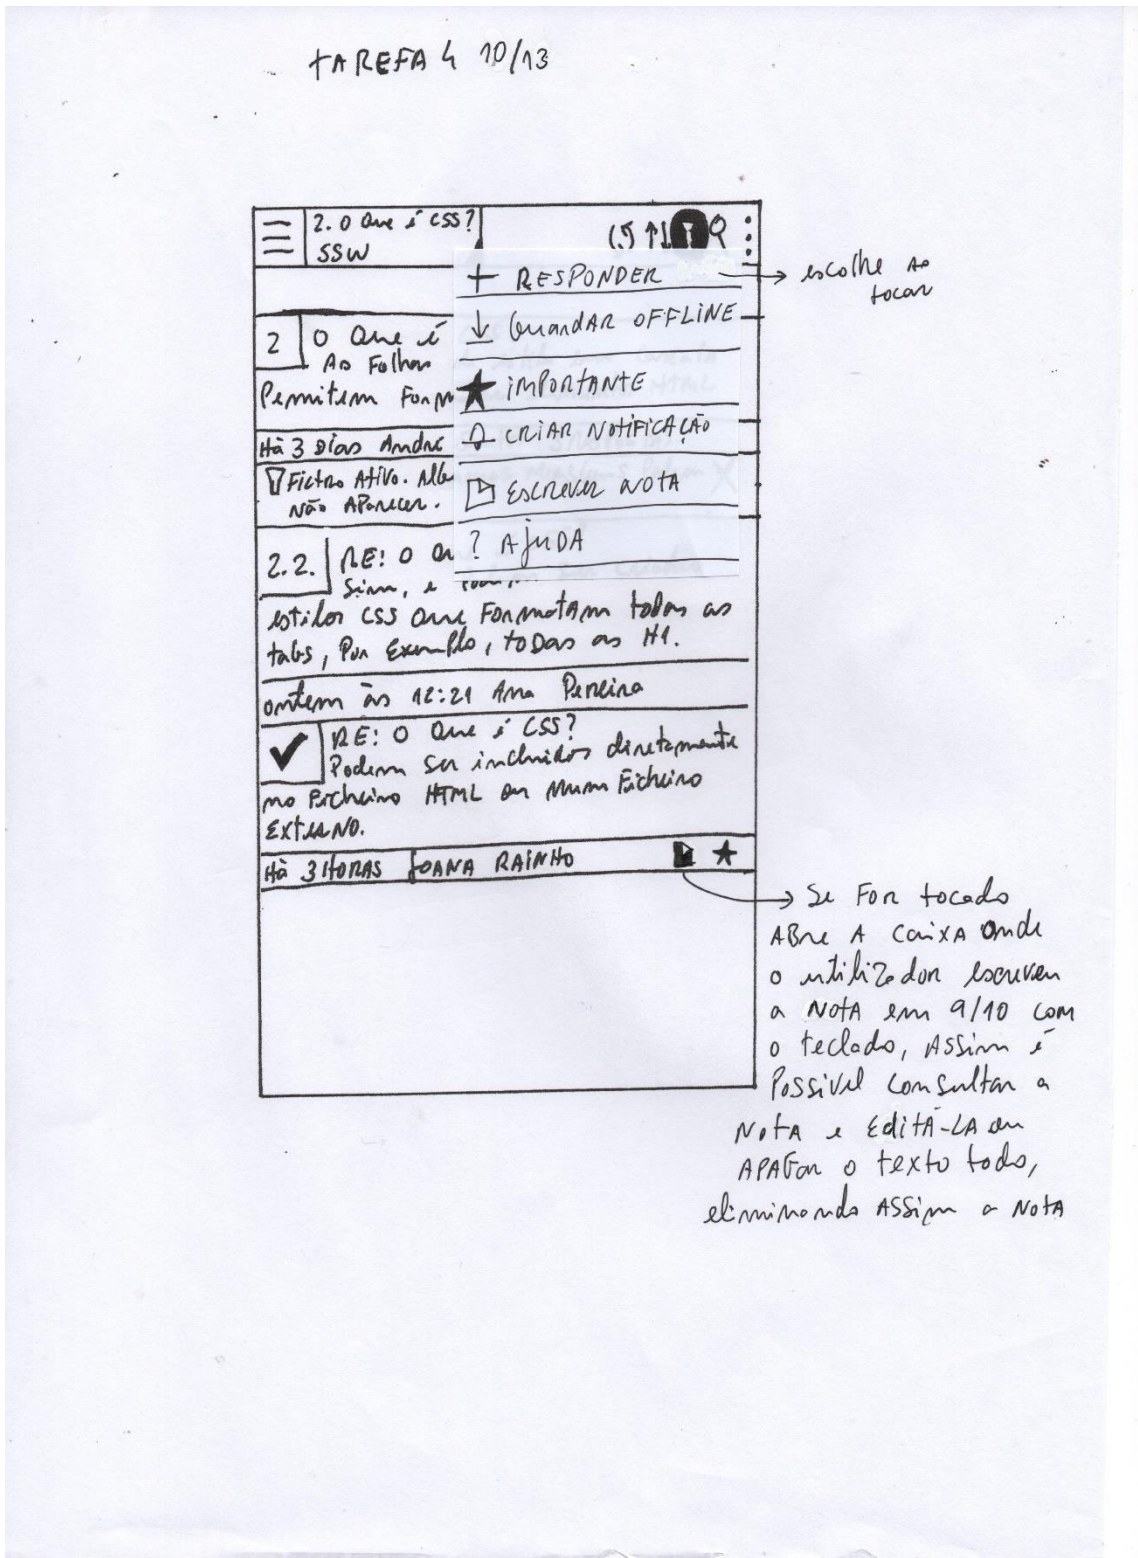 tAREFA 4 10/13
2. O Que é CSS?
SSW
+ RESPONDER
escolhe ao
tocar
Guardar OFFLINE
2 O Que é
As Folhas
IMPORTANTE
Permitem Form
CRIAR NOTIFICAÇÃO
Há 3 Dias André
Filtro Ativo. Algu
ESCREVER NOTA
Não APARECER.
? AJUDA
2.2. RE: O Qu
Sim, e
estilos CSS Que Formatam todas as
tags, Por Exemplo, todas as H1.
ontem às 12:21 Ana Pereira
RE: O Que é CSS?
Podem Ser incluidos diretamente
no Ficheiro HTML ou Num Ficheiro
EXTERNO.
Há 3 HORAS JOANA RAINHO
Se For tocado
ABre A CaixA Onde
o utilizador escreveu
a NotA em 9/10 com
o teclado, ASSim é
PoSSivel ConSultar a
NotA e EditÁ-LA ou
APAGar o texto todo,
eliminando ASSim a NotA